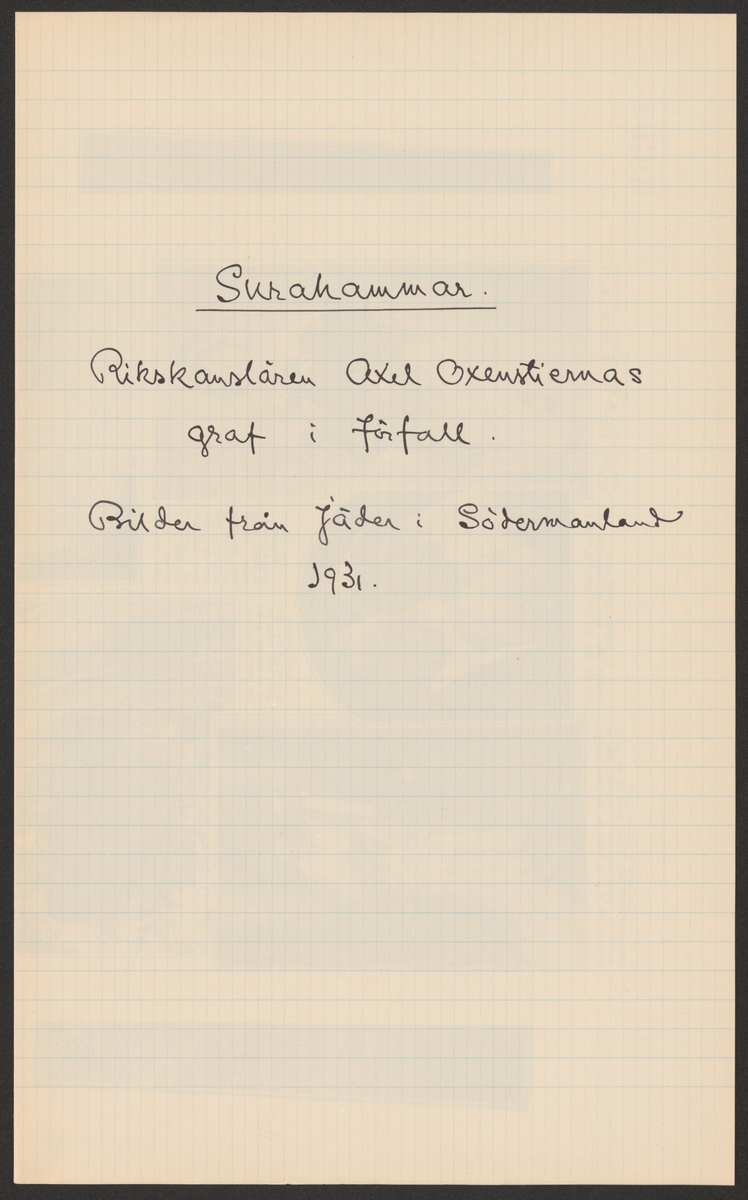 Surahammar.
Rikskanslären Axel Oxenstiernas
graf i förfall.
Bilder från Jäder i Södermanland
1931.